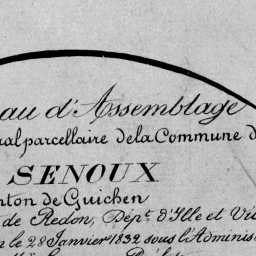 eau d'Assemblage
ral parcellaire de la Commune d
SENOUX
nton de Guichen
de Redon, Dép.t d'Ille et Vil
e le 28 Janvier 1832 sous l'Adminis